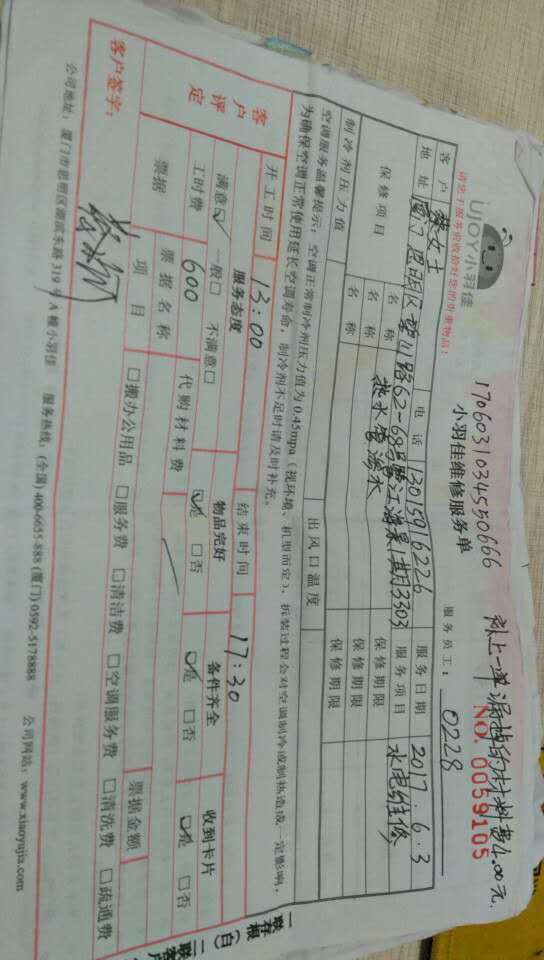 UJOY小羽佳
请您于服务前收拾好您的贵重物品!
17060310345506​66
补上一单漏掉的材料费4.00元.
小羽佳维修服务单
NO. 0059105
服务员工: 0228
客户 女士 电话 13015916226 服务日期 2017.6.3
地址 厦门思明区 川路62-68号 江海景1期3303 服务项目 水电维修
保修项目 名称 热水管漏水 保修期限
名称 保修期限
名称 保修期限
制冷剂压力值 出风口温度
空调服务温馨提示: 空调正常制冷剂压力值为 0.45mpa (视环境、机型而定), 拆装过程会对空调制冷或制热造成一定影响,
为确保空调正常使用延长空调寿命, 制冷剂不足时请及时补充。
开工时间 13:00 结束时间 17:30
客户评定 服务态度 物品完好 备件齐全 收到卡片
满意☑ 一般□ 不满意□ ☑是 □否 ☑是 □否 ☑是 □否
工时费 600 代购材料费
票据 票据名称 票据金额
项目 □搬办公用品 □服务费 □清洁费 □空调服务费 □清洗费 □疏通费
客户签字:
公司地址: 厦门市思明区湖滨东路 319 号 A 幢小羽佳 服务热线: (全国) 400-6655-888 (厦门) 0592-5178888 公司网站: www.xiaoyujia.com
一联存根 (白) 二联客户